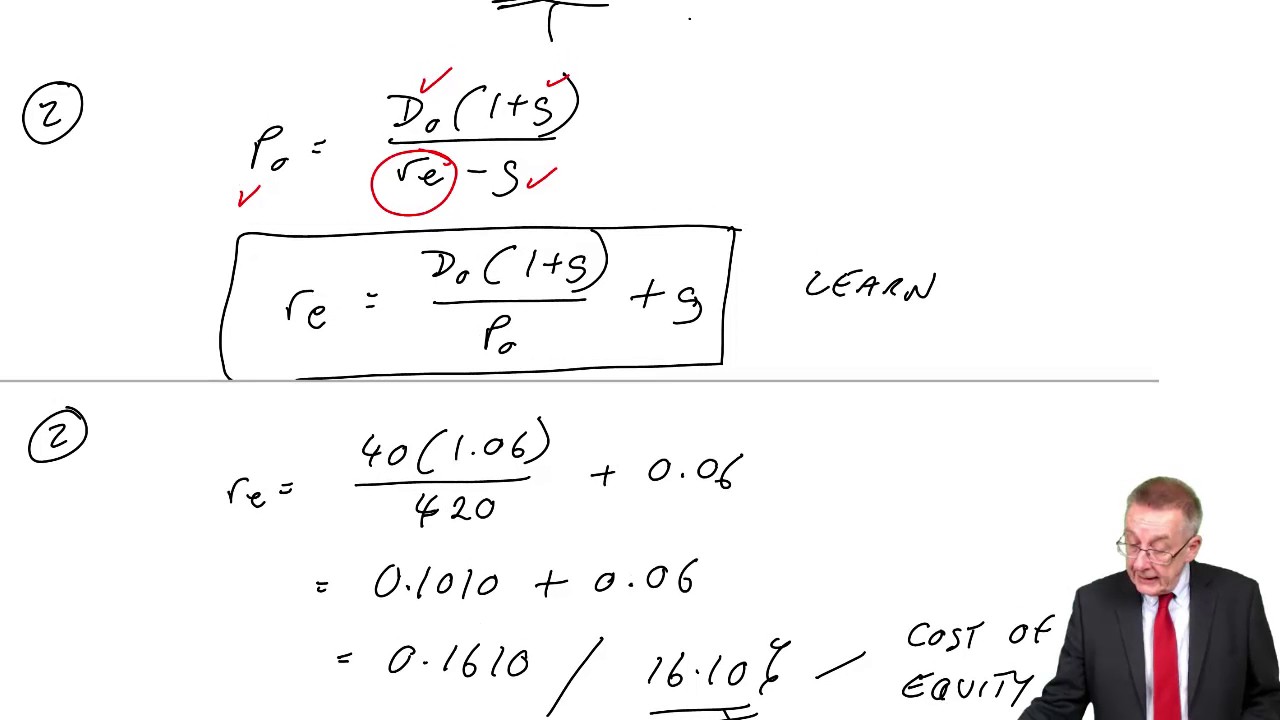 ②
P₀ = D₀(1+g) / re - g
re = D₀(1+g) / P₀ + g
LEARN
②
re = 40(1.06) / 420 + 0.06
= 0.1010 + 0.06
= 0.1610 / 16.10% / COST OF EQUITY